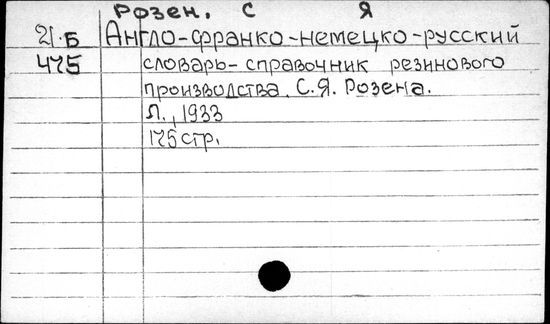 Розен. С Я
21.Б Англо-франко-немецко-русский
475 словарь-справочник резинового
производства. С.Я. Розена.
Л., 1933
175 стр.